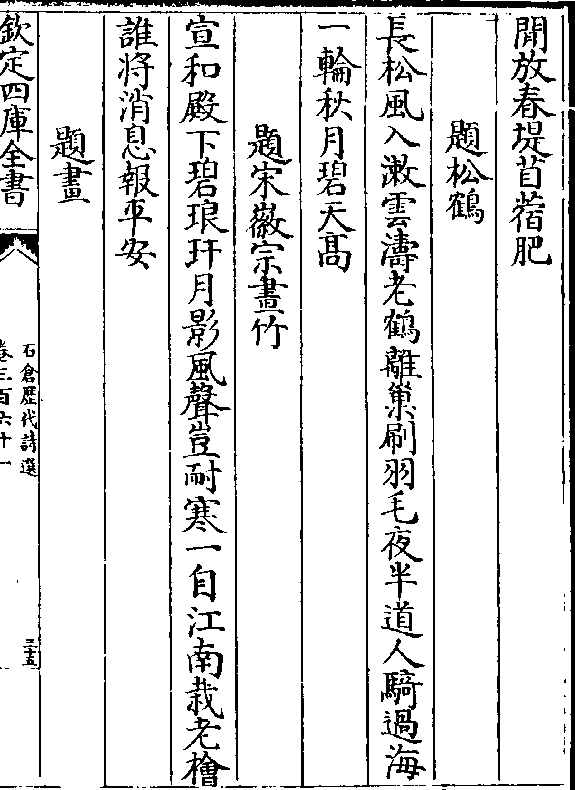 開放春堤苜蓿肥
題松鶴
長松風入漱雲濤老鶴離巢刷羽毛夜半道人騎過海
一輪秋月碧天髙
題宋徽宗畫竹
宣和殿下碧琅玕月影風聲豈耐寒一自江南栽老檜
誰將消息報平安
題畫
欽定四庫全書
石倉歷代詩選
卷三百六十一
三十五